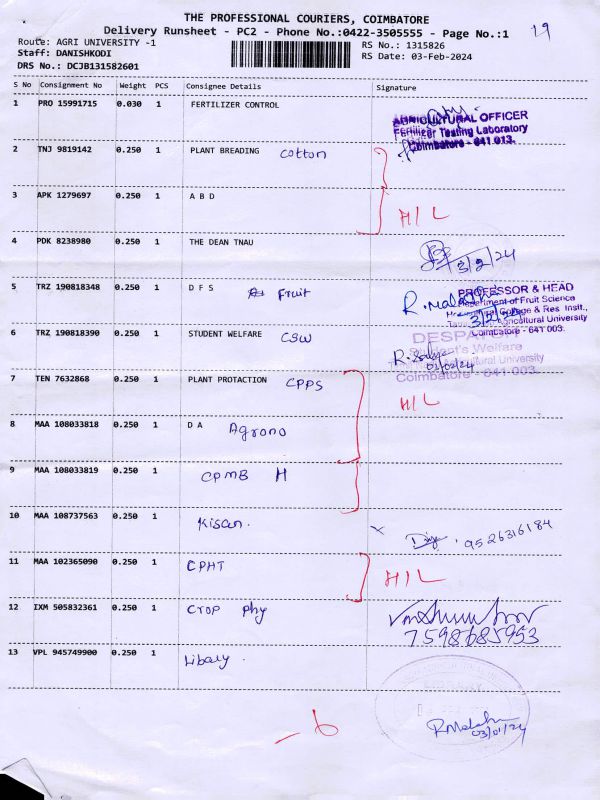 THE PROFESSIONAL COURIERS, COIMBATORE
Delivery Runsheet - PC2 - Phone No.:0422-3505555 - Page No.:1 19
Route: AGRI UNIVERSITY -1 RS No.: 1315826
Staff: DANISHKODI RS Date: 03-Feb-2024
DRS No.: DCJB131582601
S No Consignment No Weight PCS Consignee Details Signature
1 PRO 15991715 0.030 1 FERTILIZER CONTROL
AGRICULTURAL OFFICER
Fertilizer Testing Laboratory
Coimbatore - 641 013.
2 TNJ 9819142 0.250 1 PLANT BREADING Cotton
3 APK 1279697 0.250 1 A B D
H/L
4 PDK 8238980 0.250 1 THE DEAN TNAU
3/2/24
5 TRZ 190818348 0.250 1 D F S Fruit
PROFESSOR & HEAD
Department of Fruit Science
College & Res. Instt.,
Agricultural University
Coimbatore - 641 003.
R. Malathi
3/2/24
6 TRZ 190818390 0.250 1 STUDENT WELFARE CSW
DESPATCH
Student's Welfare
Agricultural University
Coimbatore - 641 003.
03/02/24
7 TEN 7632868 0.250 1 PLANT PROTACTION CPPS
H/L
8 MAA 108033818 0.250 1 D A Agrono
9 MAA 108033819 0.250 1 CPMB H
10 MAA 108737563 0.250 1 Kisan.
9526316184
11 MAA 102365090 0.250 1 CPHT H/L
12 IXM 505832361 0.250 1 Crop phy
7598685953
13 VPL 945749900 0.250 1 Libaly.
03/01/24
- 6